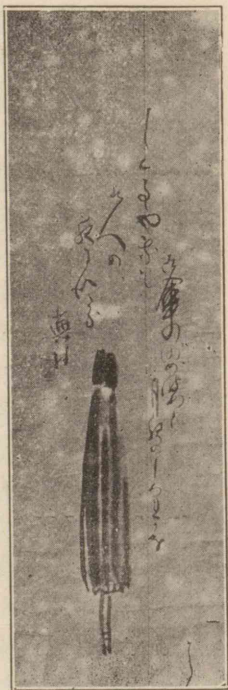 古傘の婆娑と
月夜のしくれ哉
しくるゝや我も
古人の
夜に似たる
蕪村